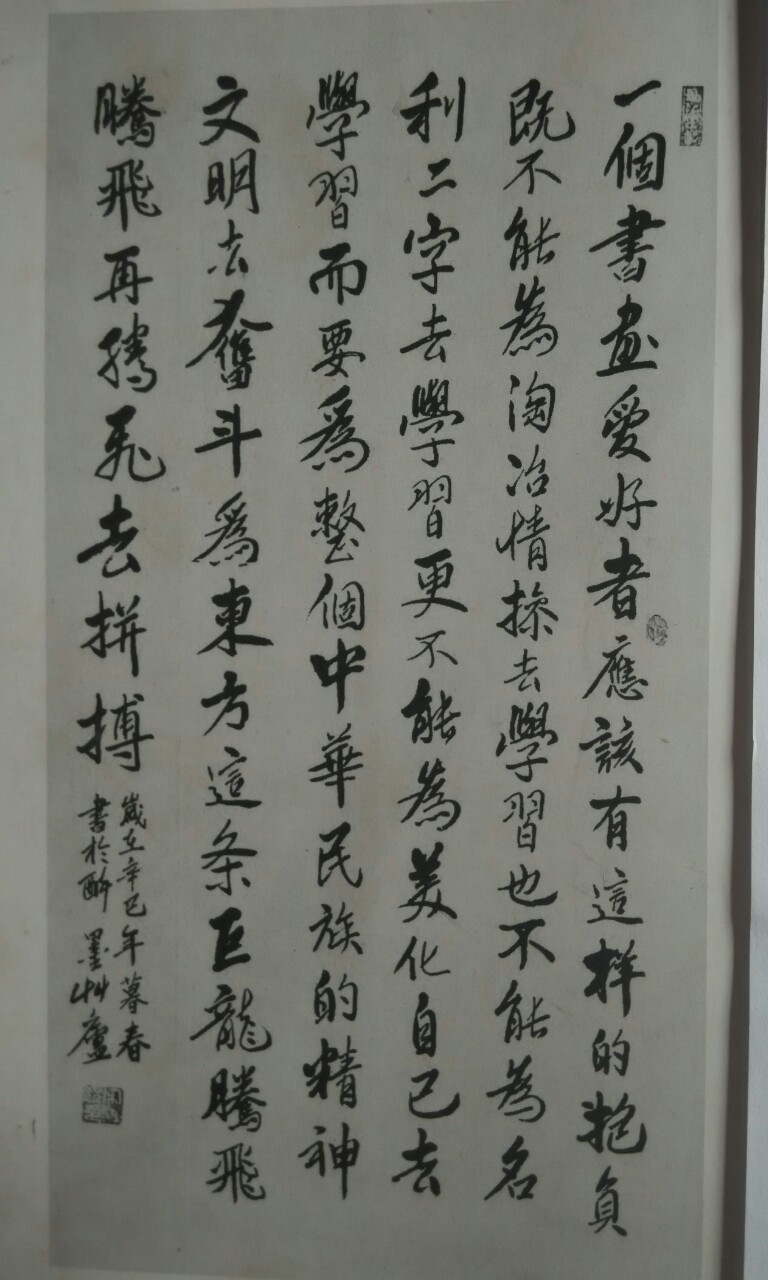 一個書畫愛好者應該有這樣的抱負
既不能為淘冶情操去學習也不能為名
利二字去學習更不能為美化自己去
學習而要爲整個中華民族的精神
文明去奮斗爲東方這条巨龍騰飛
騰飛再騰飛去拼搏
歲在辛巳年暮春
書於醉墨草廬